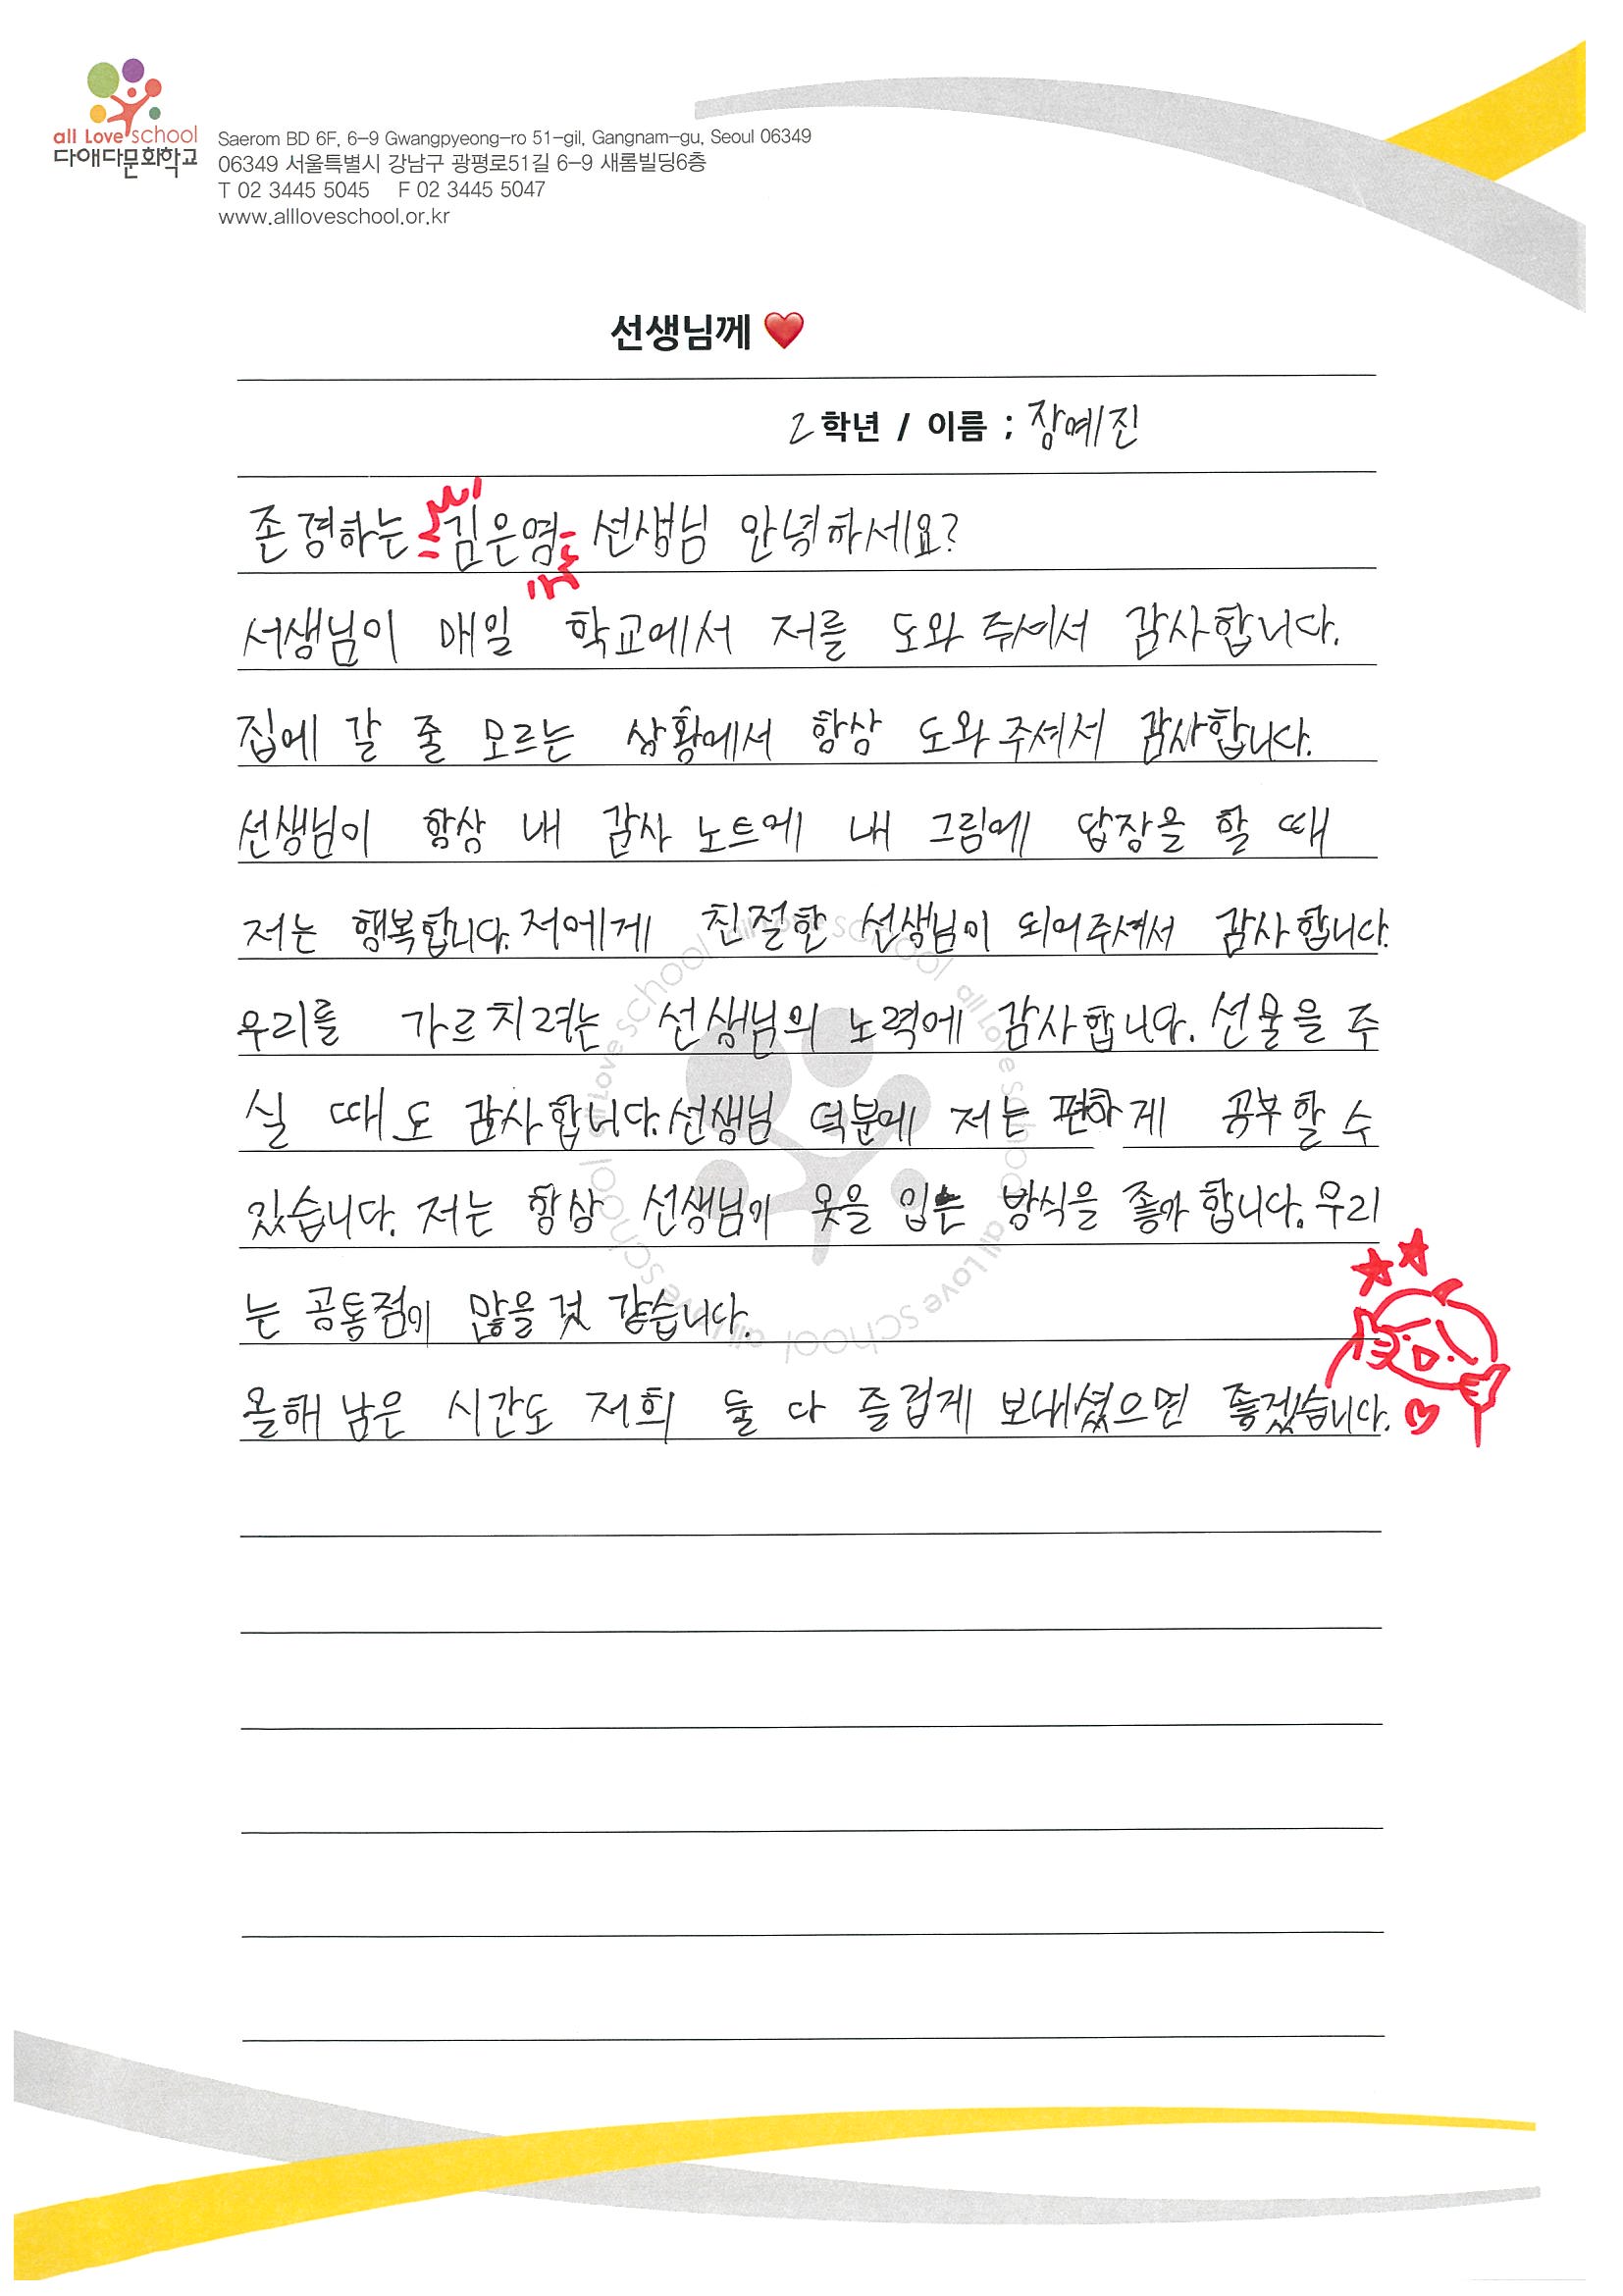 all Love school
다애다문화학교
Saerom BD 6F, 6-9 Gwangpyeong-ro 51-gil, Gangnam-gu, Seoul 06349
06349 서울특별시 강남구 광평로51길 6-9 새롬빌딩6층
T 02 3445 5045 F 02 3445 5047
www.allloveschool.or.kr
선생님께 ❤️
2 학년 / 이름 ; 장예진
존경하는 김은영 선생님 안녕하세요?
서생님이 매일 학교에서 저를 도와 주셔서 감사합니다.
집에 갈 줄 모르는 상황에서 항상 도와 주셔서 감사합니다.
선생님이 항상 내 감사 노트에 내 그림에 답장을 할 때
저는 행복합니다. 저에게 친절한 선생님이 되어주셔서 감사합니다.
우리를 가르치려는 선생님의 노력에 감사합니다. 선물을 주
실 때도 감사합니다. 선생님 덕분에 저는 편하게 공부할 수
있습니다. 저는 항상 선생님이 옷을 입는 방식을 좋아 합니다. 우리
는 공통점이 많을 것 같습니다.
올해 남은 시간도 저희 둘 다 즐겁게 보내셨으면 좋겠습니다.
all Love school all Love school all Love school all Love school all Love school all Love school